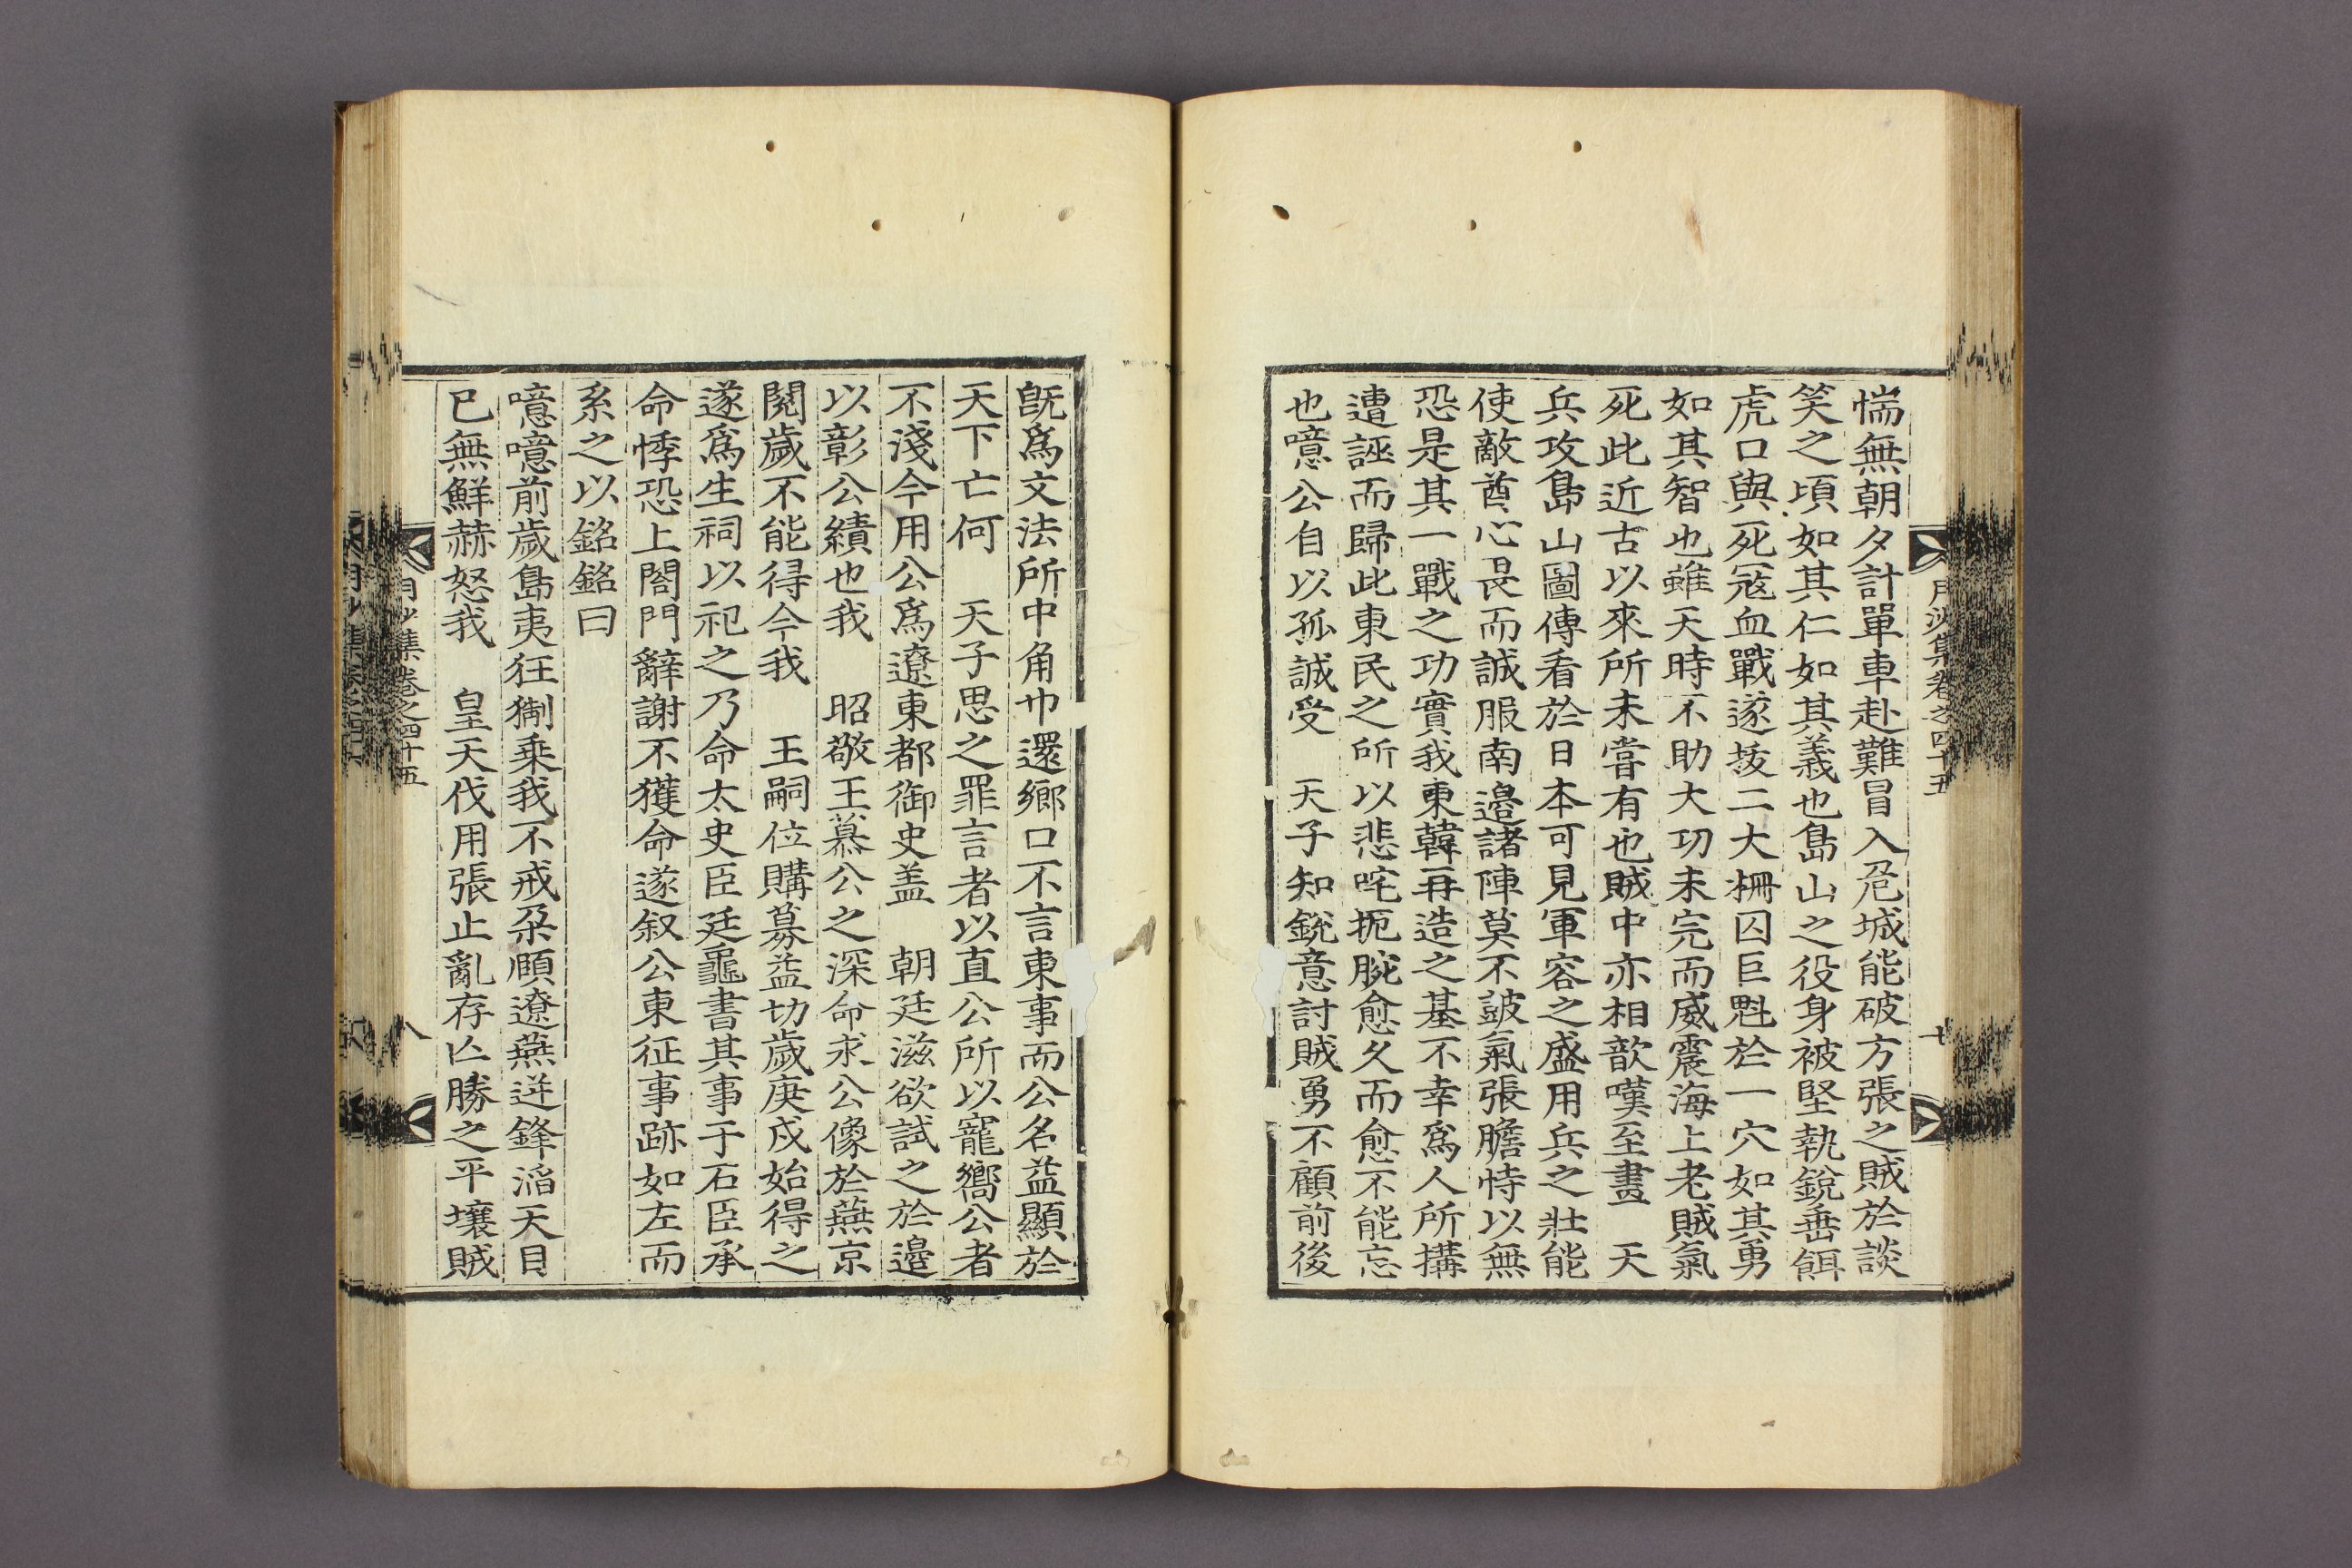 惴無朝夕計單車赴難冒入危城能破方張之賊於談
笑之頃如其仁如其義也島山之役身被堅執銳垂餌
虎口與死寇血戰遂拔二大柵囚巨魁於一穴如其勇
如其智也雖天時不助大功未完而威震海上老賊氣
死此近古以來所未嘗有也賊中亦相歆嘆至畫　天
兵攻島山圖傳看於日本可見軍容之盛用兵之壯能
使敵酋心畏而誠服南邊諸陣莫不皷氣張膽恃以無
恐是其一戰之功實我東韓再造之基不幸爲人所搆
遭誣而歸此東民之所以悲咤扼腕愈久而愈不能忘
也噫公自以孤誠受　天子知銳意討賊勇不顧前後
月沙集卷之四十五
七
旣爲文法所中角巾還鄉口不言東事而公名益顯於
天下亡何　天子思之罪言者以直公所以寵嚮公者
不淺今用公爲遼東都御史盖　朝廷滋欲試之於邊
以彰公績也我　昭敬王慕公之深命求公像於燕京
閱歲不能得今我　王嗣位購募益切歲庚戌始得之
遂爲生祠以祀之乃命太史臣廷龜書其事于石臣承
命悸恐上閤門辭謝不獲命遂叙公東征事跡如左而
系之以銘銘曰
噫噫前歲島夷狂猘乘我不戒朶頤遼燕迸鋒滔天目
已無鮮赫怒我　皇天伐用張止亂存亡勝之平壤賊
月沙集卷之四十五
八